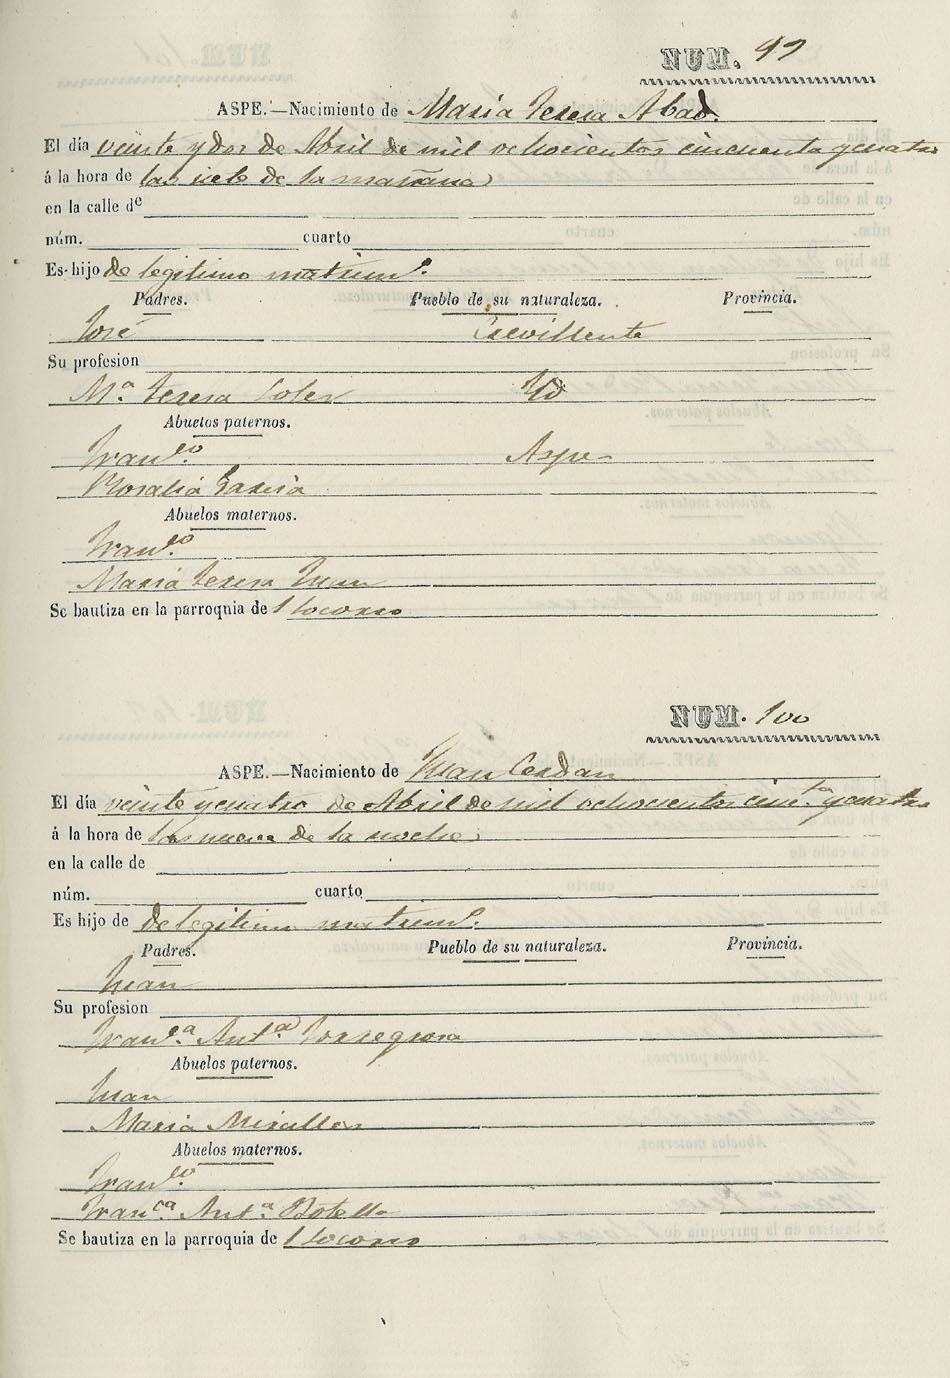 NUM. 99
ASPE.—Nacimiento de Maria Teresa Abad.
El día veinte y dos de Abril de mil ochocientos cincuenta y cuatro
á la hora de las siete de la mañana
en la calle de
núm. cuarto
Es hijo de legitimo matrimº.
Padres. Pueblo de su naturaleza. Provincia.
José Crevillente
Su profesion
Mª. Teresa Soler Yd
Abuelos paternos.
Franco. Aspe
Rosalia Garcia
Abuelos maternos.
Franco.
Maria Teresa Juan
Se bautiza en la parroquia de Socorro
NUM. 100
ASPE.—Nacimiento de Juan Cerdan
El día veinte y cuatro de Abril de mil ochocientos cincta. y cuatro
á la hora de las nueve de la noche
en la calle de
núm. cuarto
Es hijo de de legitimo matrimº.
Padres. Pueblo de su naturaleza. Provincia.
Juan
Su profesion
Franca. Anta. Torregrosa
Abuelos paternos.
Juan
Maria Miralles
Abuelos maternos.
Franco.
Franca. Anta. Botella
Se bautiza en la parroquia de Socorro